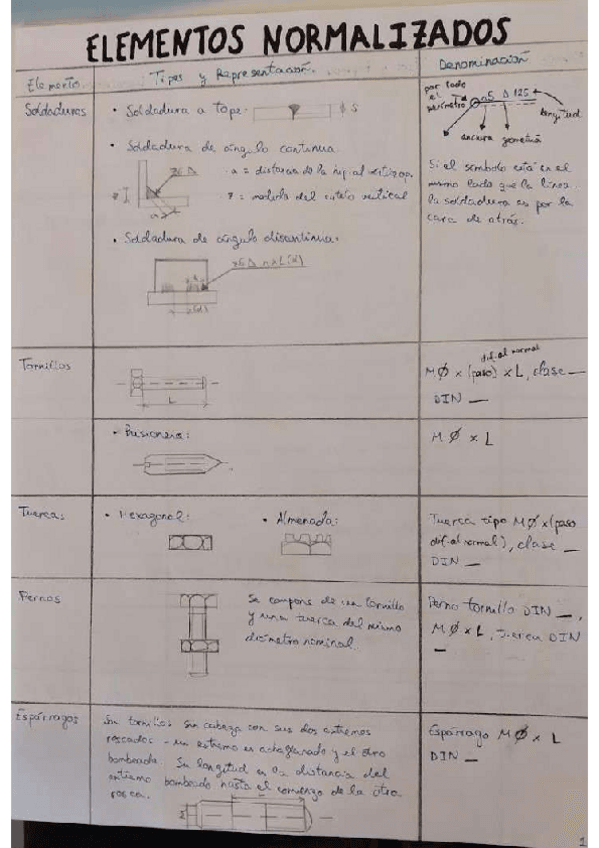 ELEMENTOS NORMALIZADOS
Elemento
Tipos y Representación.
Denominación
Soldaduras
• Soldadura a tope.
S
por todo
el
perímetro
a5 △ 125
longitud
anchura
geometría
Si el símbolo está en el
mismo lado que la línea
la soldadura es por la
cara de atrás.
• Soldadura de ángulo continua.
a = distancia de la hip. al vértice
z = medida del cateto vertical
• Soldadura de ángulo discontinua:
Tornillos
L
dif. al normal
MØ x (paso) x L, clase __
DIN __
• Prisionera:
MØ x L
Tuerca:
• Hexagonal:
• Almenada:
Tuerca tipo MØ x (paso
dif. al normal), clase __
DIN __
Pernos
Se compone de un tornillo
y una tuerca del mismo
diámetro nominal.
Perno tornillo DIN __,
MØ x L, tuerca DIN
__
Espárragos
Son tornillos sin cabeza con sus dos extremos
roscados - un extremo es achaflanado y el otro
bombeado. Su longitud es la distancia del
extremo bombeado hasta el comienzo de la otra
rosca.
Espárrago MØ x L
DIN __
1